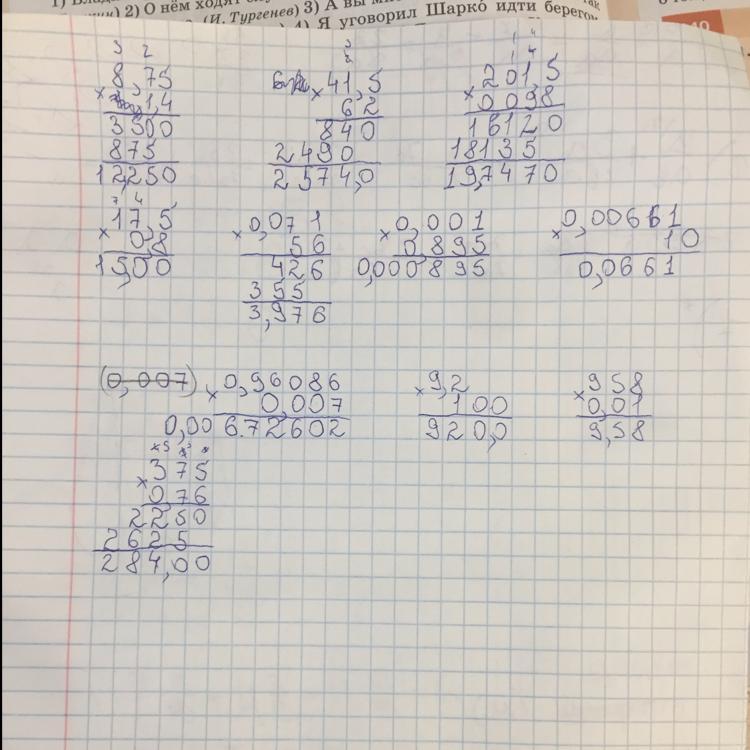 1) Влад
2) О нём ходят
(И. Тургенев) 3) А вы
4) Я уговорил Шарко́ идти берегом
3 2
8,75
× 1,4
3500
875
12,250
3
41,5
× 62
840
2490
2574,0
1 4
1 4
201,5
× 0098
16120
18135
19,7470
7 4
17,5
× 0,8
15,00
0,071
× 56
426
355
3,976
0,001
× 0,895
0,000895
0,00661
× 10
0,0661
(0,007)
0,96086
× 0,007
0,00672602
9,2
× 100
920,0
958
× 0,01
9,58
375
× 076
2250
2625
284,00